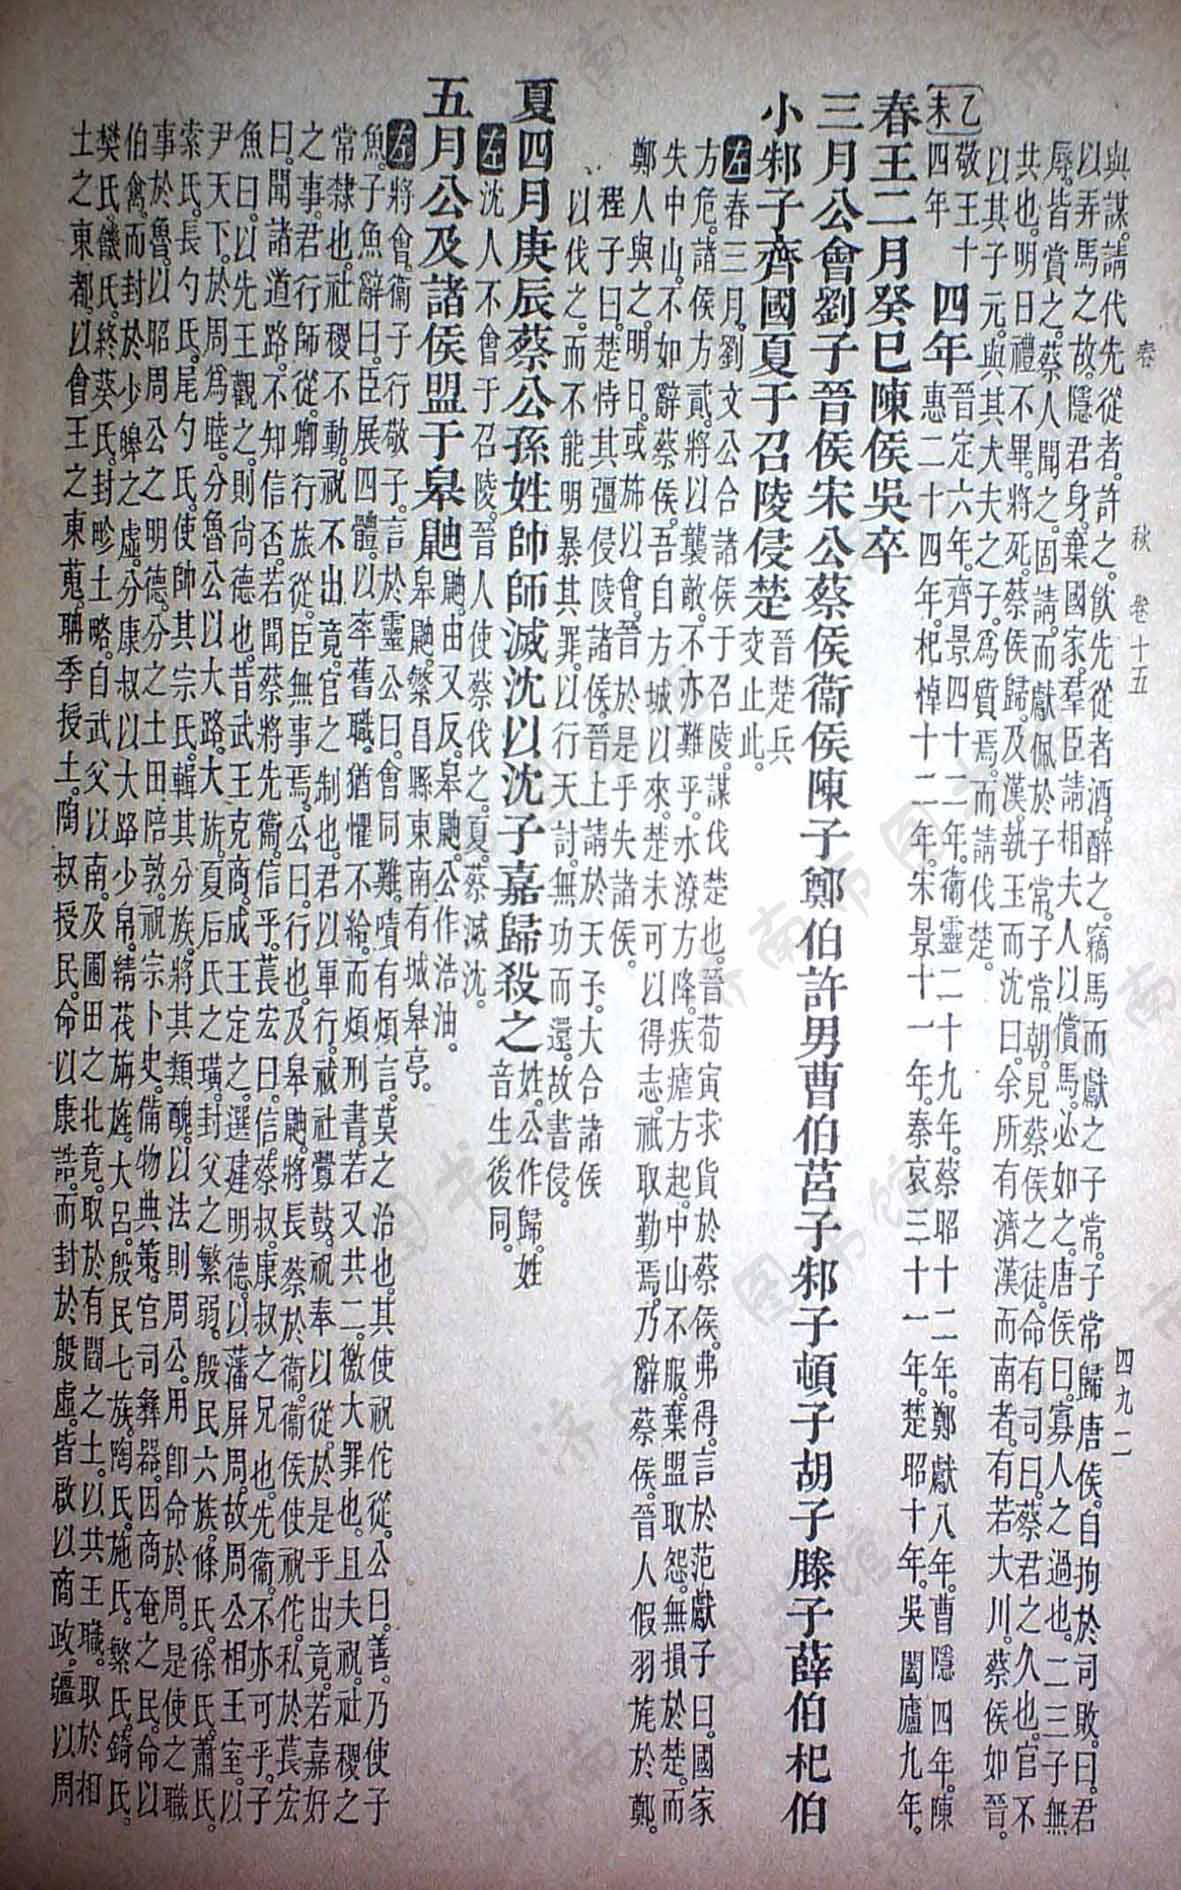 春 秋 卷十五 四九二
與謀。請代先從者。許之。飲先從者酒。醉之。竊馬而獻之子常。子常歸唐侯。自拘於司敗。曰。君
以弄馬之故。隱君身。棄國家。羣臣請相夫人以償馬。必如之。唐侯曰。寡人之過也。二三子無
辱。皆賞之。蔡人聞之。固請而獻佩於子常。子常朝。見蔡侯之徒。命有司曰。蔡君之久也。官不
共也。明日禮不畢。將死。蔡侯歸。及漢。執玉而沈曰。余所有濟漢而南者。有若大川。蔡侯如晉。
以其子元。與其大夫之子。爲質焉。而請伐楚。
乙未
敬王十四年
四年
晉定六年。齊景四十二年。衞靈二十九年。蔡昭十二年。鄭獻八年。曹隱四年。陳
惠二十四年。杞悼十二年。宋景十一年。秦哀三十一年。楚昭十年。吳闔廬九年。
春王二月癸巳陳侯吳卒
三月公會劉子晉侯宋公蔡侯衞侯陳子鄭伯許男曹伯莒子邾子頓子胡子滕子薛伯杞伯
小邾子齊國夏于召陵侵楚
晉楚兵
交止此。
左 春三月。劉文公合諸侯于召陵。謀伐楚也。晉荀寅求貨於蔡侯。弗得。言於范獻子曰。國家
方危。諸侯方貳。將以襲敵。不亦難乎。水潦方降。疾瘧方起。中山不服。棄盟取怨。無損於楚。而
失中山。不如辭蔡侯。吾自方城以來。楚未可以得志。祇取勤焉。乃辭蔡侯。晉人假羽旄於鄭。
鄭人與之。明日。或旆以會。晉於是乎失諸侯。
程子曰。楚恃其彊。侵陵諸侯。晉上請於天子。大合諸侯
以伐之。而不能明暴其罪。以行天討。無功而還。故書侵。
夏四月庚辰蔡公孫姓帥師滅沈以沈子嘉歸殺之
姓。公作歸。姓
音生。後同。
左 沈人不會于召陵。晉人使蔡伐之。夏。蔡滅沈。
五月公及諸侯盟于皋鼬
鼬。由又反。皋鼬。公作浩油。
皋鼬。繁昌縣東南有城皋亭。
左 將會。衞子行敬子。言於靈公曰。會同難。嘖有煩言。莫之治也。其使祝佗從。公曰。善。乃使子
魚。子魚辭曰。臣展四體。以率舊職。猶懼不給。而煩刑書。若又共二。徼大罪也。且夫祝。社稷之
常隸也。社稷不動。祝不出竟。官之制也。君以軍行。祓社釁鼓。祝奉以從。於是乎出竟。若嘉好
之事。君行師從。卿行旅從。臣無事焉。公曰。行也。及皋鼬。將長蔡於衞。衞侯使祝佗。私於萇宏
曰。聞諸道路。不知信否。若聞蔡將先衞。信乎。萇宏曰。信。蔡叔。康叔之兄也。先衞。不亦可乎。子
魚曰。以先王觀之。則尚德也。昔武王克商。成王定之。選建明德。以藩屏周。故周公相王室。以
尹天下。於周爲睦。分魯公以大路。大旂。夏后氏之璜。封父之繁弱。殷民六族。條氏。徐氏。蕭氏。
索氏。長勺氏。尾勺氏。使帥其宗氏。輯其分族。將其類醜。以法則周公。用卽命於周。是使之職
事於魯。以昭周公之明德。分之土田陪敦。祝宗卜史。備物典策。官司彝器。因商奄之民。命以
伯禽。而封於少皞之虛。分康叔以大路。少帛。綪茷。旃旌。大呂。殷民七族。陶氏。施氏。繁氏。錡氏。
樊氏。饑氏。終葵氏。封畛土略。自武父以南。及圃田之北竟。取於有閻之土。以共王職。取於相
土之東都。以會王之東蒐。聃季授土。陶叔授民。命以康誥。而封於殷虛。皆啟以商政。疆以周